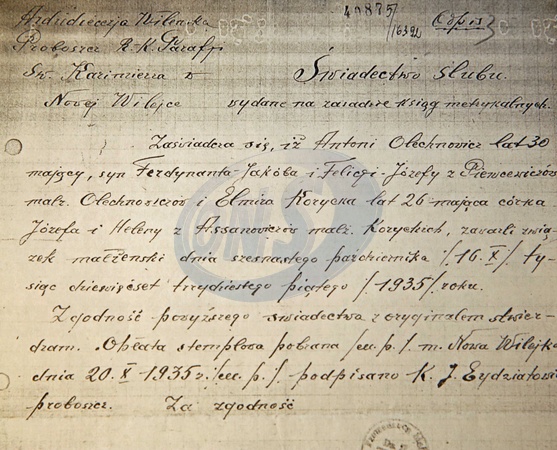 Archidiecezja Wileńska
40875/16392
Odpis
Proboszcz R.-K. Parafji
Św. Kazimierza w
Świadectwo ślubu.
Nowej Wilejce
wydane na zasadzie ksiąg metrykalnych.
Zaświadcza się, iż Antoni Olechnowicz lat 30
mający, syn Ferdynanta-Jakóba i Felicji-Józefy z Piewcewiczów
małż. Olechnowiczów i Elmira Korycka lat 26 mająca córka
Józefa i Heleny z Assanowiczów małż. Koryckich, zawarli zwią-
zek małżeński dnia szesnastego października /16.X/ ty-
siąc dziewięćset trzydziestego piątego /1935/ roku.
Zgodność powyższego świadectwa z oryginałem stwier-
dzam. Opłata stemplowa pobrana /m. p./ m. Nowa Wilejka
dnia 20.X 1935 r. /m. p./ podpisano K. J. Eydziatowicz
proboszcz. Za zgodność
UNS